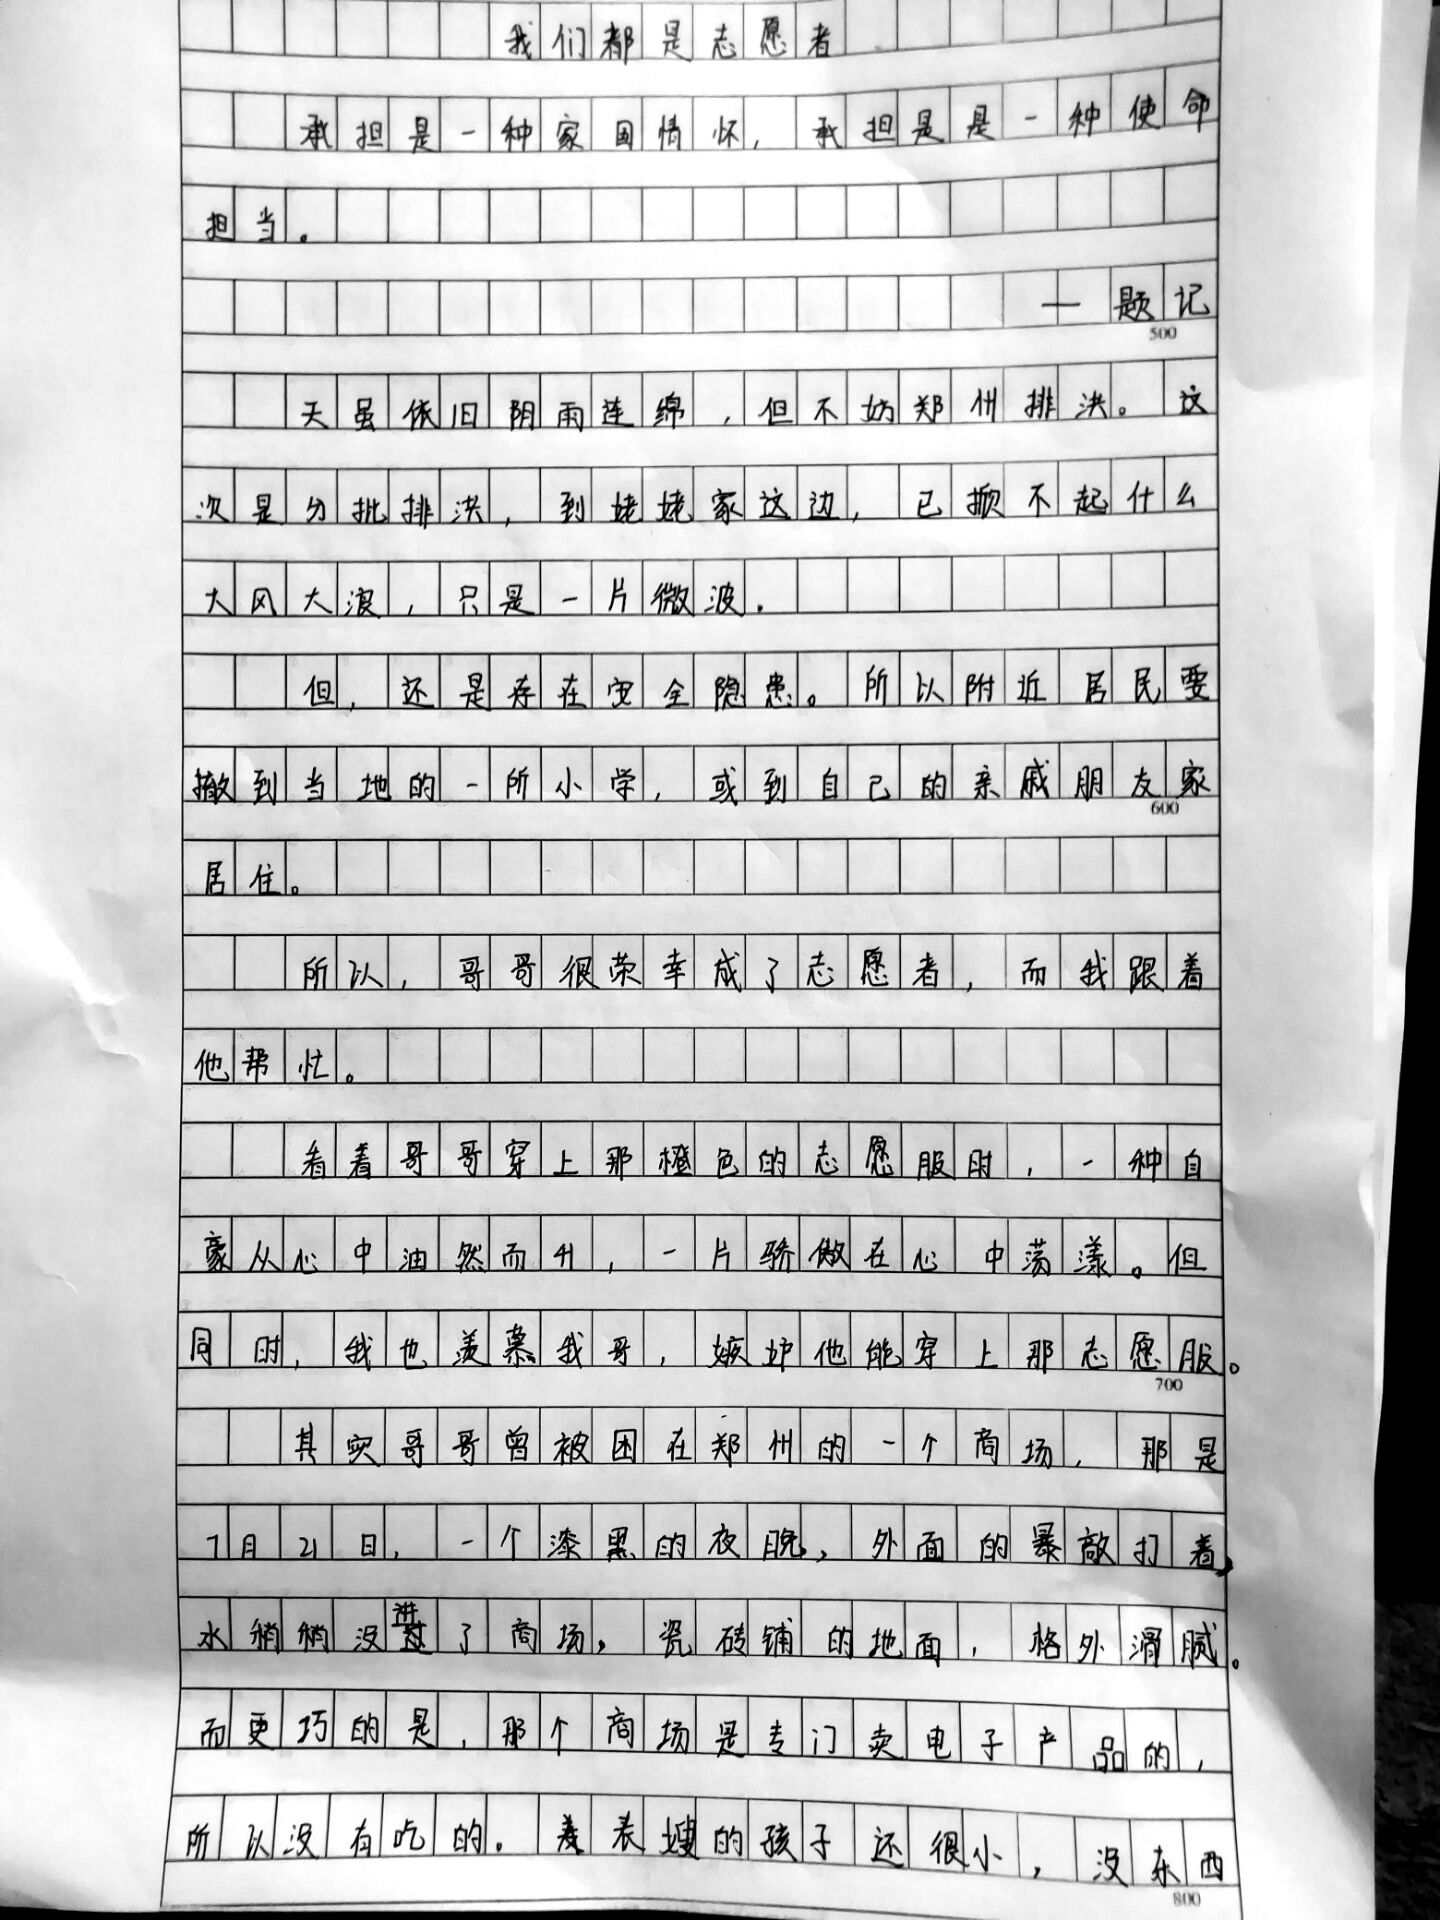 我们都是志愿者
承担是一种家国情怀，承担是是一种使命
担当。
—题记
500
天虽依旧阴雨连绵，但不妨郑州排洪。这
次是分批排洪，到姥姥家这边，已掀不起什么
大风大浪，只是一片微波.
但，还是存在安全隐患。所以附近居民要
撤到当地的一所小学，或到自己的亲戚朋友家
600
居住。
所以，哥哥很荣幸成了志愿者，而我跟着
他帮忙。
看着哥哥穿上那橙色的志愿服时，一种自
豪从心中油然而升，一片骄傲在心中荡漾。但
同时，我也羡慕我哥，嫉妒他能穿上那志愿服。
700
其实哥哥曾被困在郑州的一个商场，那是
7月21日，一个漆黑的夜晚，外面的暴敲打着，
水稍稍没进了商场，瓷砖铺的地面，格外滑腻。
而更巧的是，那个商场是专门卖电子产品的，
所以没有吃的。表嫂的孩子还很小，没东西
800